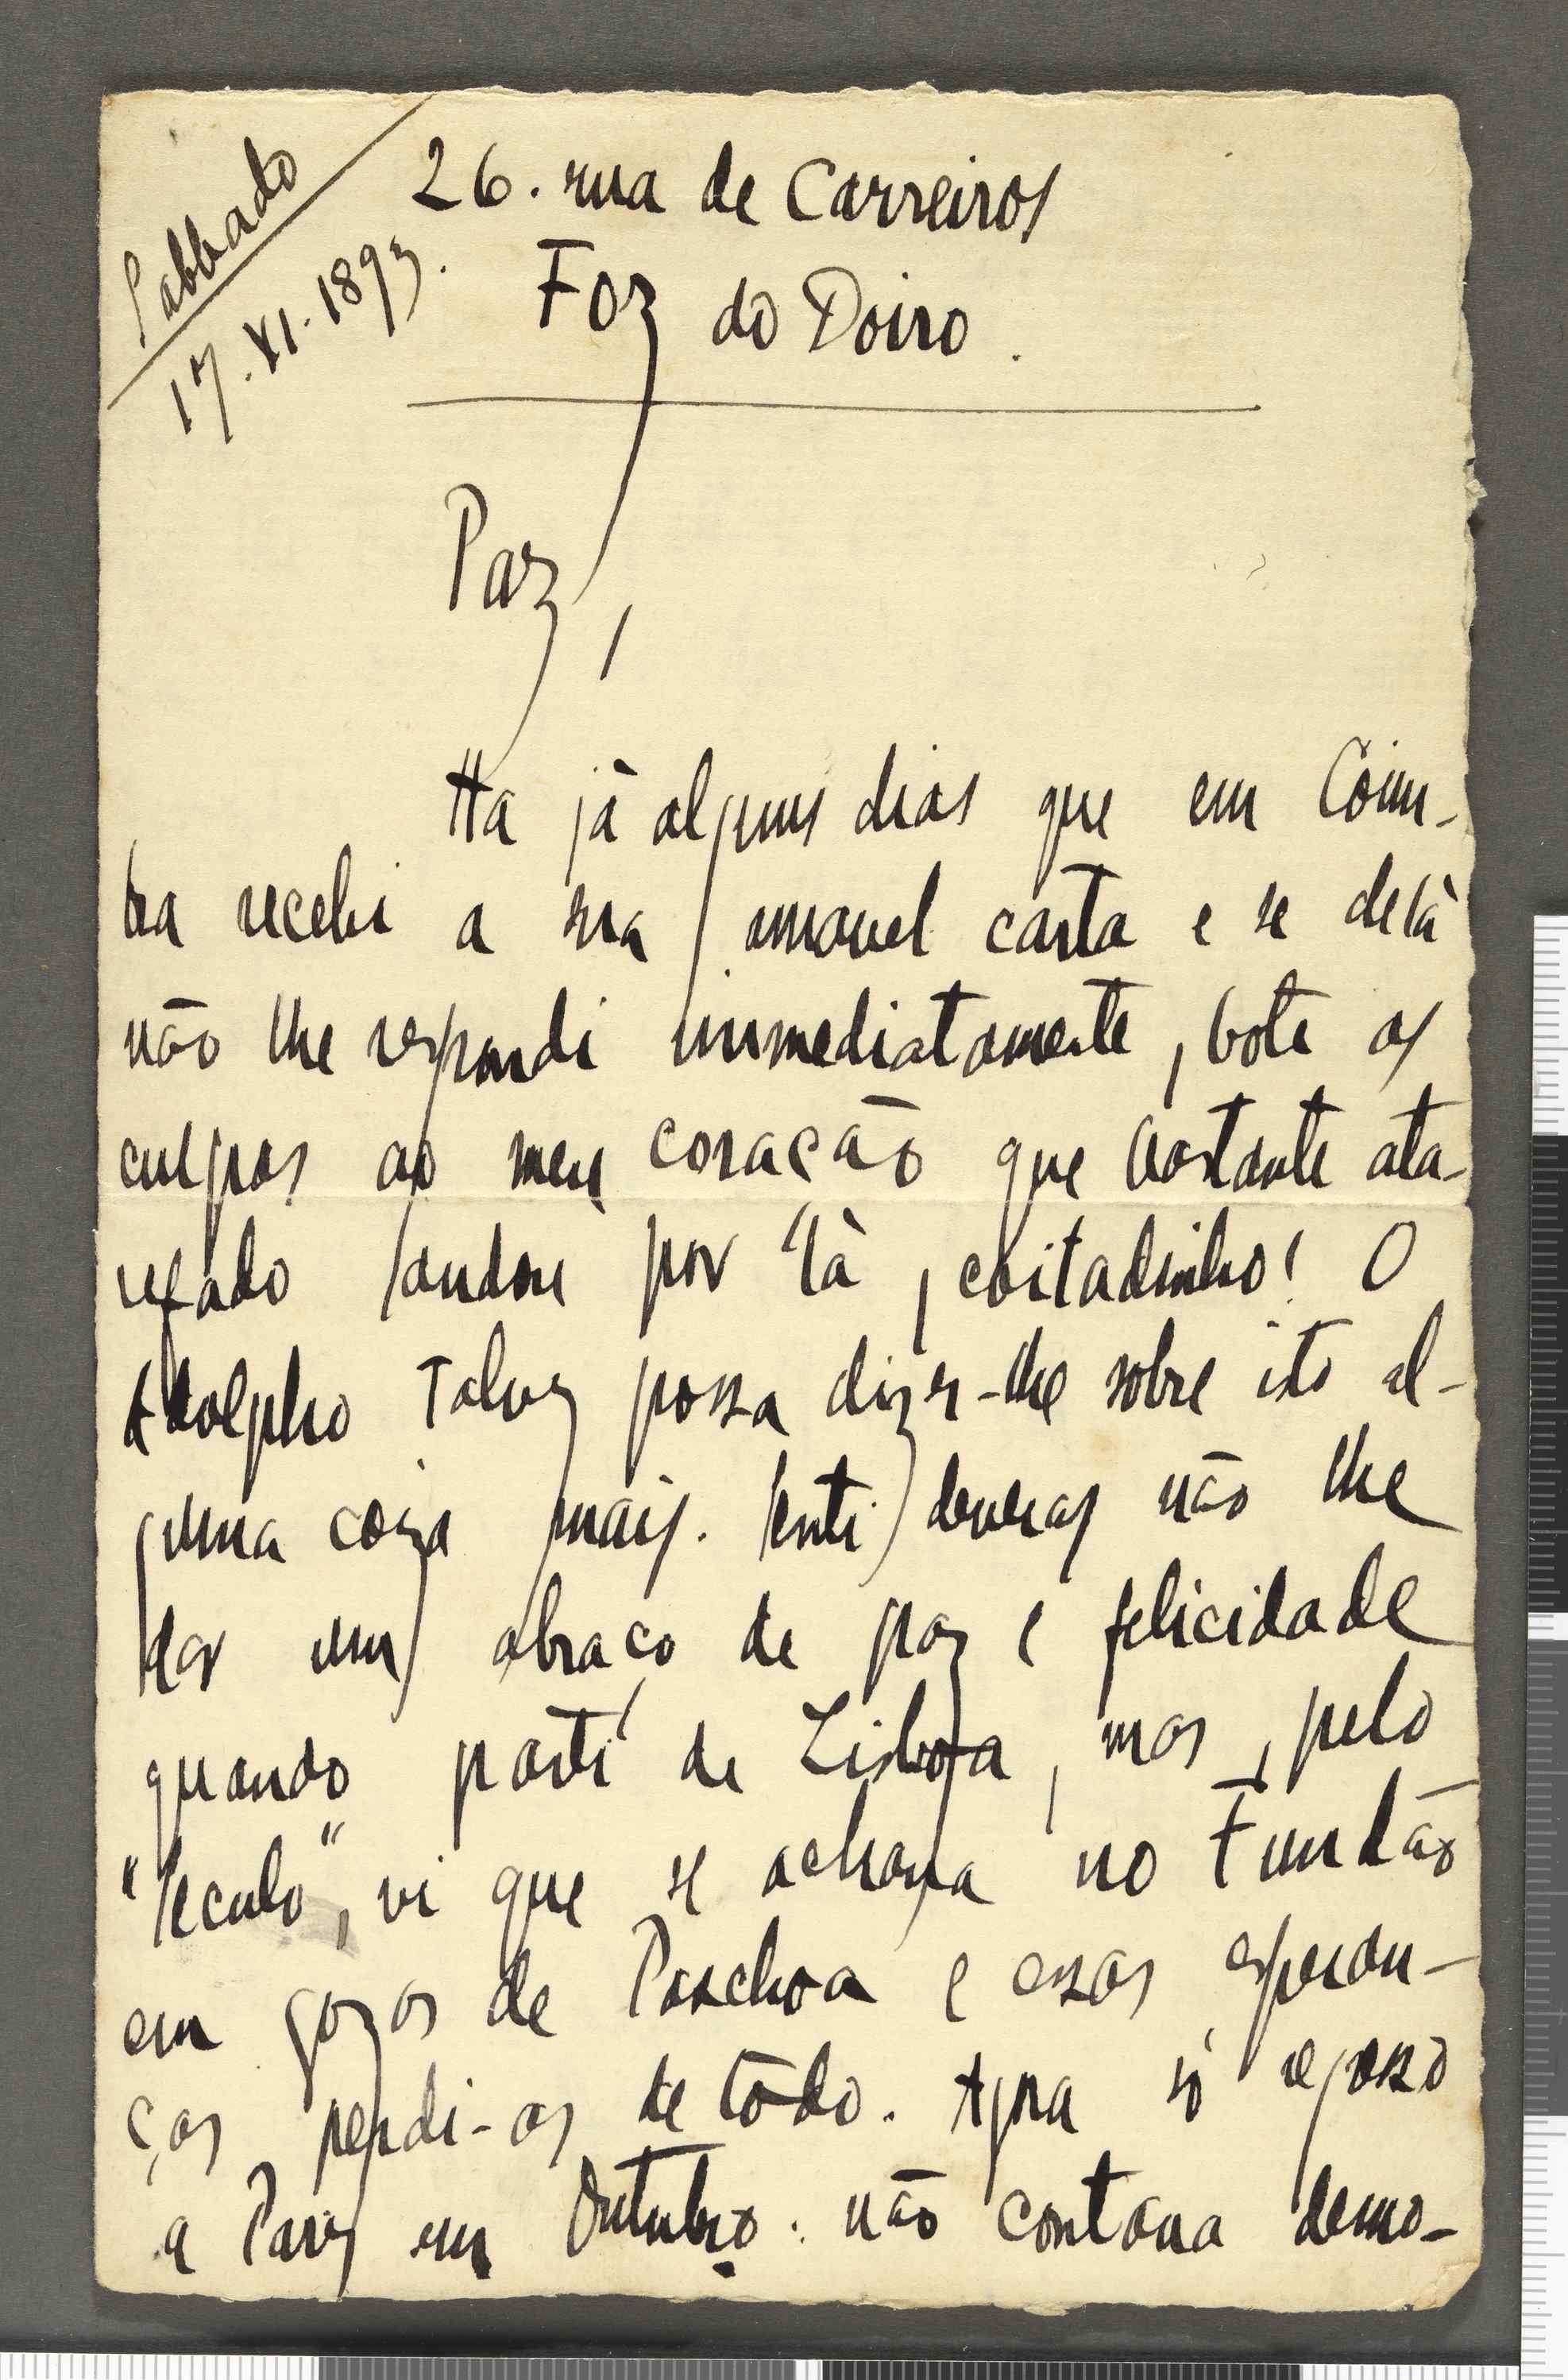 Sabbado
17.XI.1893.
26. rua de Carreiros
Foz do Doiro.
Paz,
Ha já alguns dias que em Coim-
bra recebi a sua amavel carta e se de lá
não lhe respondi immediatamente, bote as
culpas ao meu coração que bastante ata-
refado andou por lá, coitadinho! O
Adolpho talvez possa dizer-lhe sobre isto al-
guma coiza mais. Senti deveras não lhe
dar um abraço de paz e felicidade
quando parti de Lisboa, mas, pelo
"Seculo", vi que se achava no Fundão
em gozos de Paschoa e essas esperan-
ças perdi-as de tôdo. Agora só regresso
a Pariz em Outubro. não contava demo-